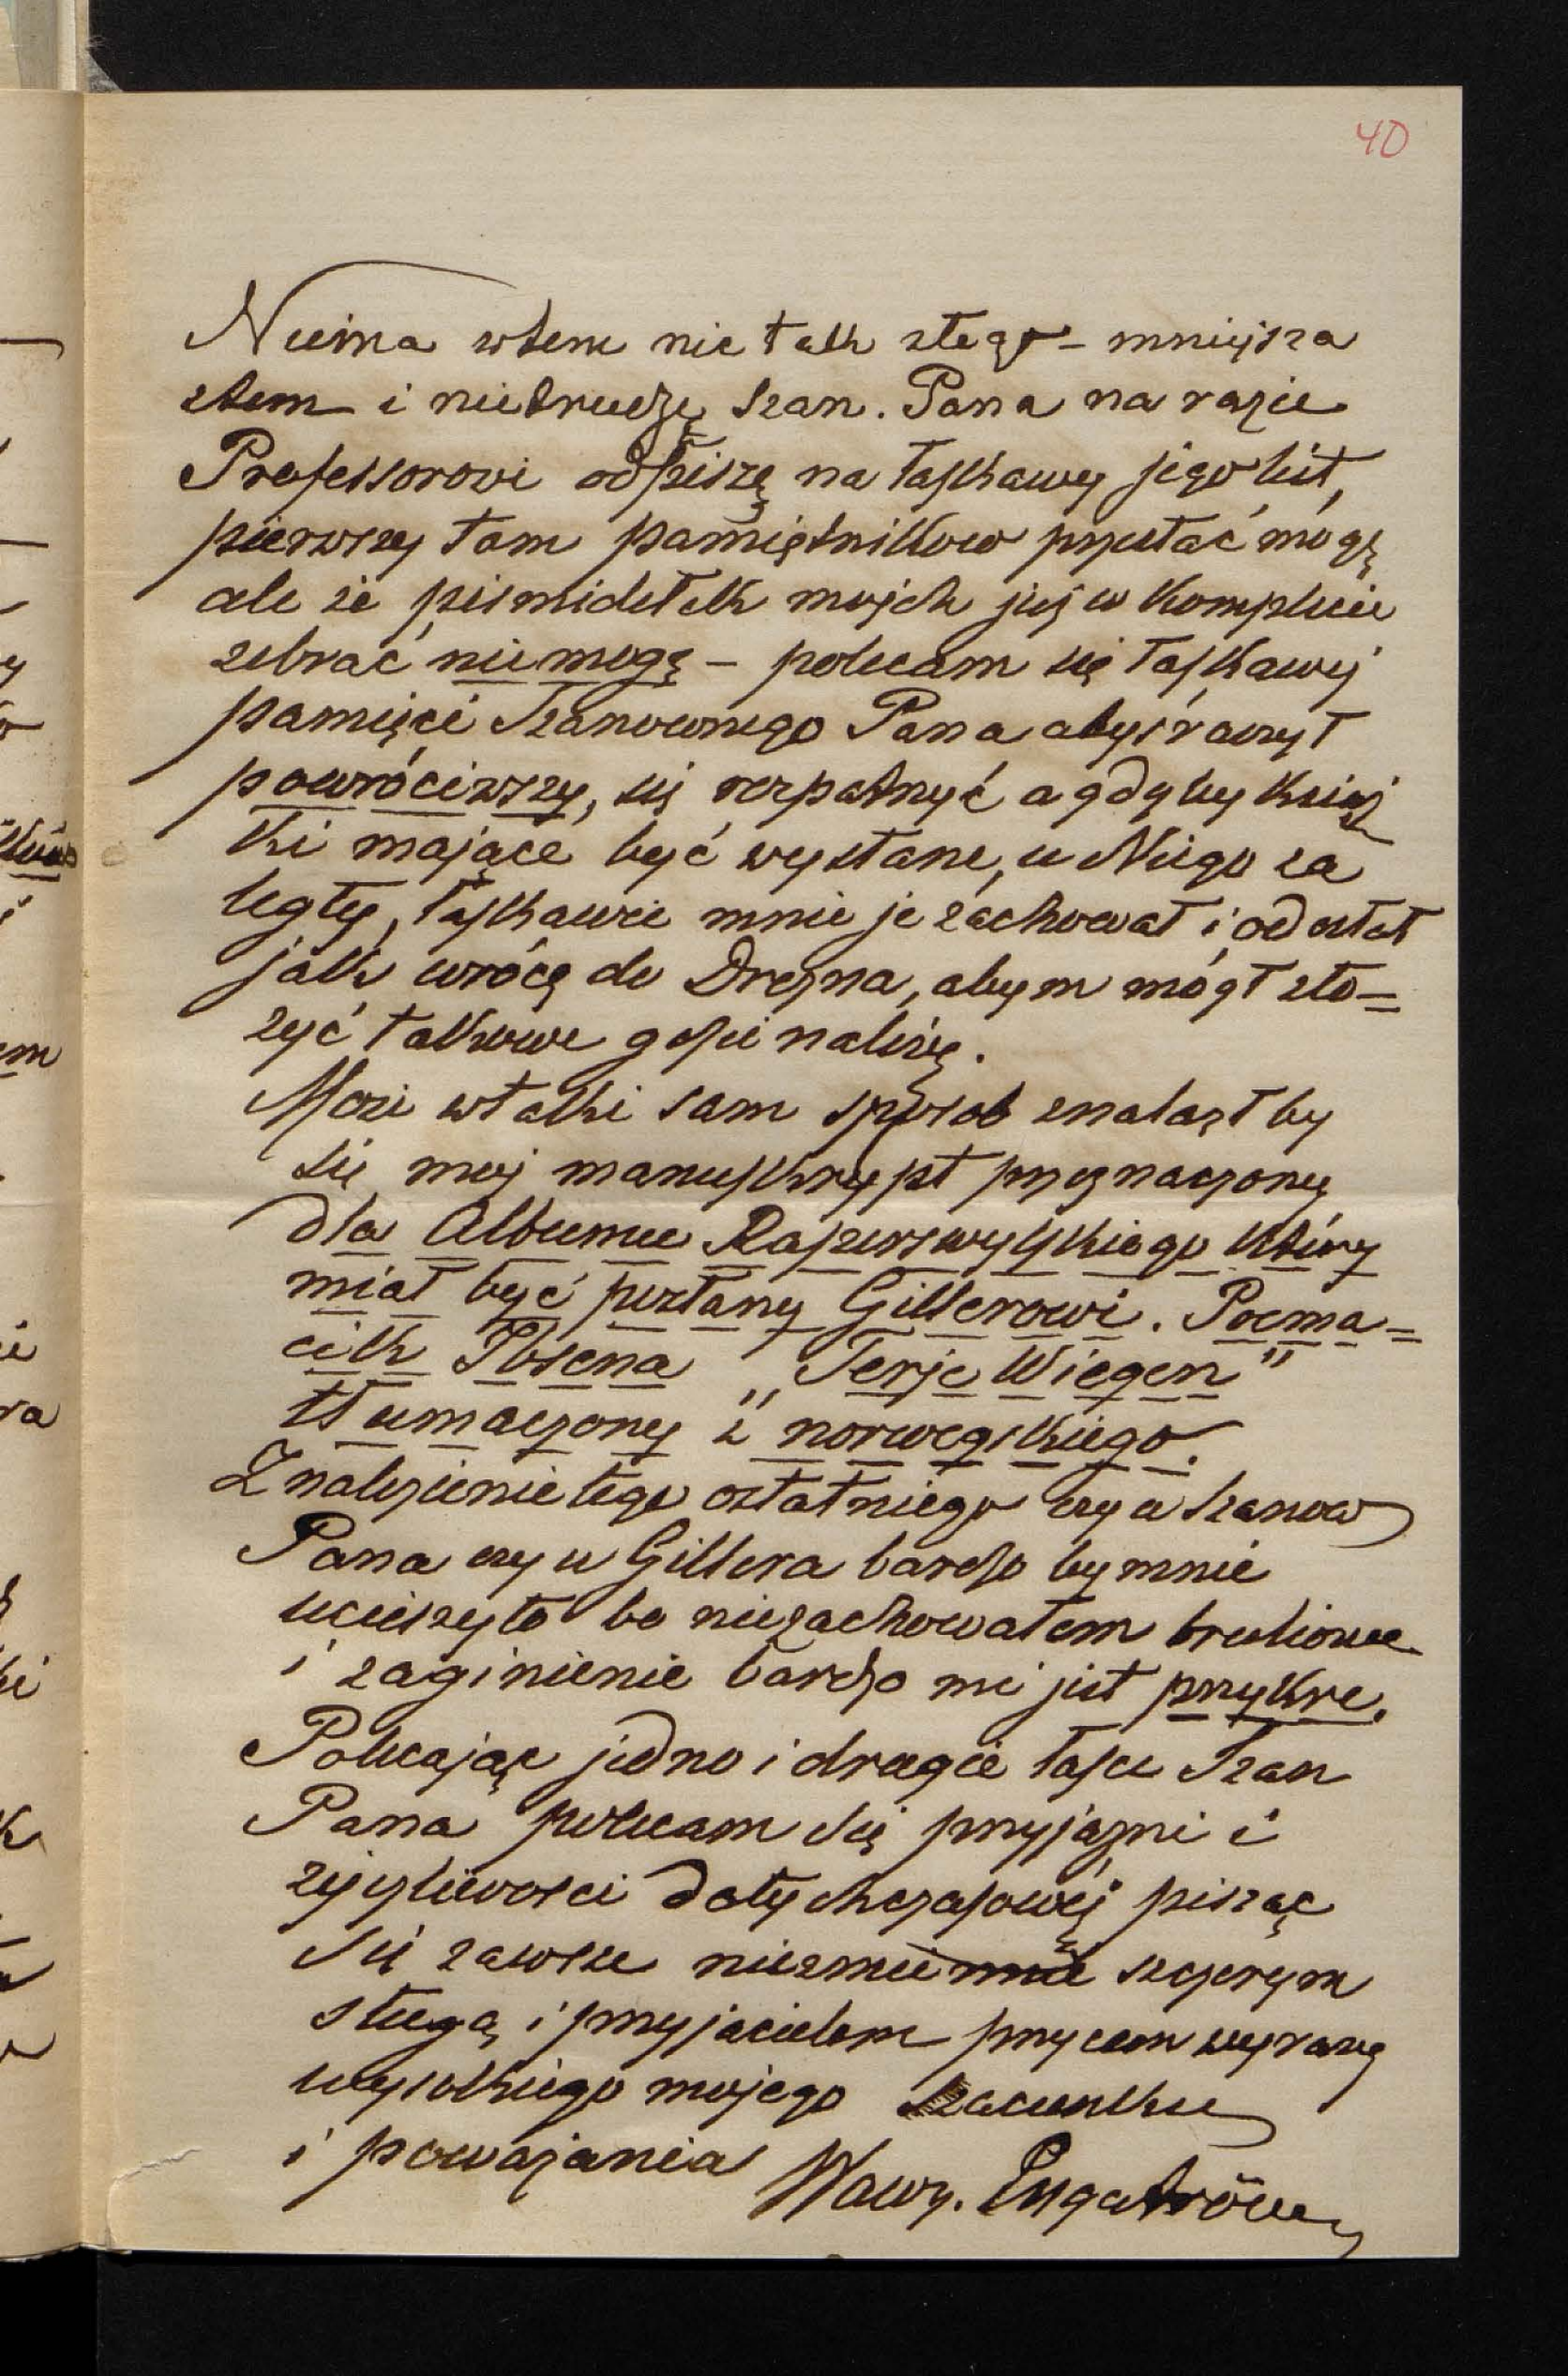 40
Niema wtem nic tak złego – mniejsza
ztem i nietrudzę Szan. Pana na razie
Professorowi odpiszę na łaskawy jego list,
pierwszy tom pamiętników przysłać mogę
ale że pismidełek mojch już w komplecie
zebrać niemogę – polecam się łaskawej
pamięci Szanownego Pana abyś raczył
powróciwszy, się rozpatrzyć a gdyby książ
ki mające być wysłane, u Niego za
legły, łaskawie mnie je zachował i odesłał
jak wrócę do Drezna, abym mógł zło=
żyć takowe gdzie należy.
Może wtaki sam sposob znalazł by
się moj manuskrypt przeznaczony
dla Albumu Raperswylskiego który
miał być posłany Gillerowi. Poema=
cik Ibsena „Terje Wiegen"
tłumaczony z norwegskiego.
Znalezienie tego ostatniego czy u Szanow
Pana czy u Gillera bardzo by mnie
ucieszyło bo niezachowałem brulionu
i zaginienie bardzo mi jest przykre.
Polecając jedno i drugie łasce Szan
Pana polecam się przyjazni i
życzliwosci dotychczasowéj pisząc
się zawsze niezmie szczerym
sługą i przyjacielem przycem wyrazy
wysokiego mojego szacunku
i powazania Wawrz. Engeström